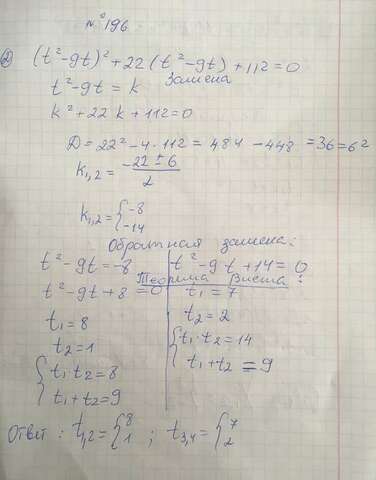 № 196
2) (t²-9t)²+22(t²-9t)+112=0
t²-9t=k Замена
k²+22k+112=0
D=22²-4·112=484-448=36=6²
k₁,₂=(-22±6)/2
k₁,₂={-8
-14
Обратная замена:
t²-9t=-8
t²-9t+8=0
t₁=8
t₂=1
{t₁t₂=8
t₁+t₂=9
t²-9t+14=0
Теорима Виета:
t₁=7
t₂=2
{t₁·t₂=14
t₁+t₂=9
Ответ: t₁,₂={8 1; t₃,₄={7 2